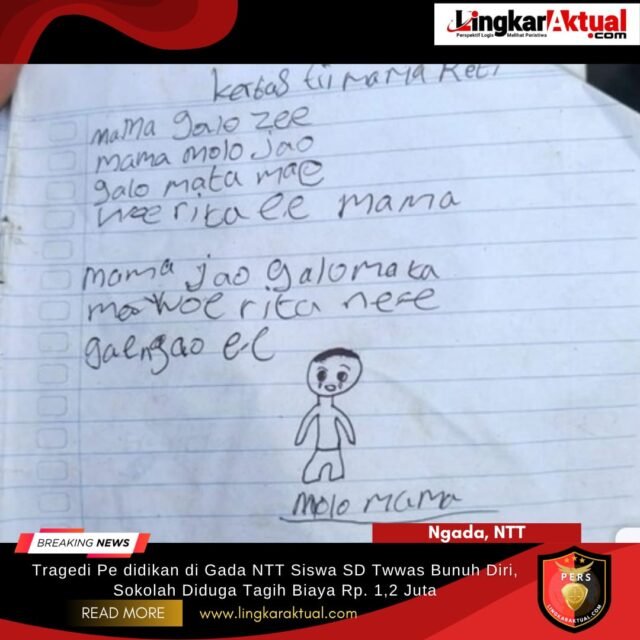 LingkarAktual
.com
Perspektif Logis Melihat Peristiwa
kertas tii mama Reti
mama galo zee
mama molo jao
galo mata mae
woe rita ee mama
mama jao galo mata
mae woe rita ne ee
ee
molo mama
Ngada, NTT
BREAKING NEWS
Tragedi Pe didikan di Gada NTT Siswa SD Twwas Bunuh Diri,
Sokolah Diduga Tagih Biaya Rp. 1,2 Juta
READ MORE www.lingkaraktual.com
PERS
LINGKARAKTUAL.COM